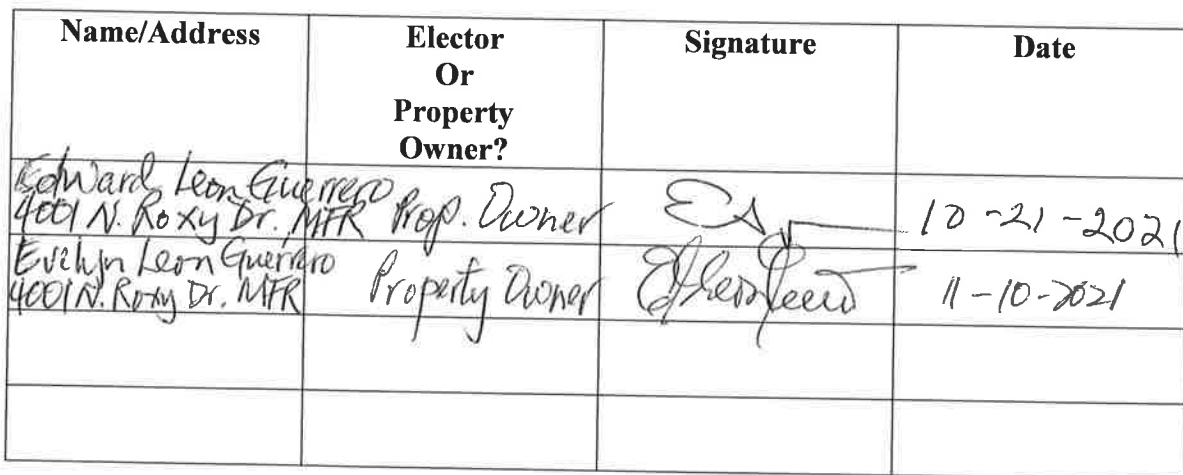 Name/Address
Elector
Or
Property
Owner?
Signature
Date
Edward Leon Guerrero
4001 N. Roxy Dr. MFR
Prop. Owner
10-21-2021
Evelyn Leon Guerrero
4001 N. Roxy Dr. MFR
Property Owner
11-10-2021